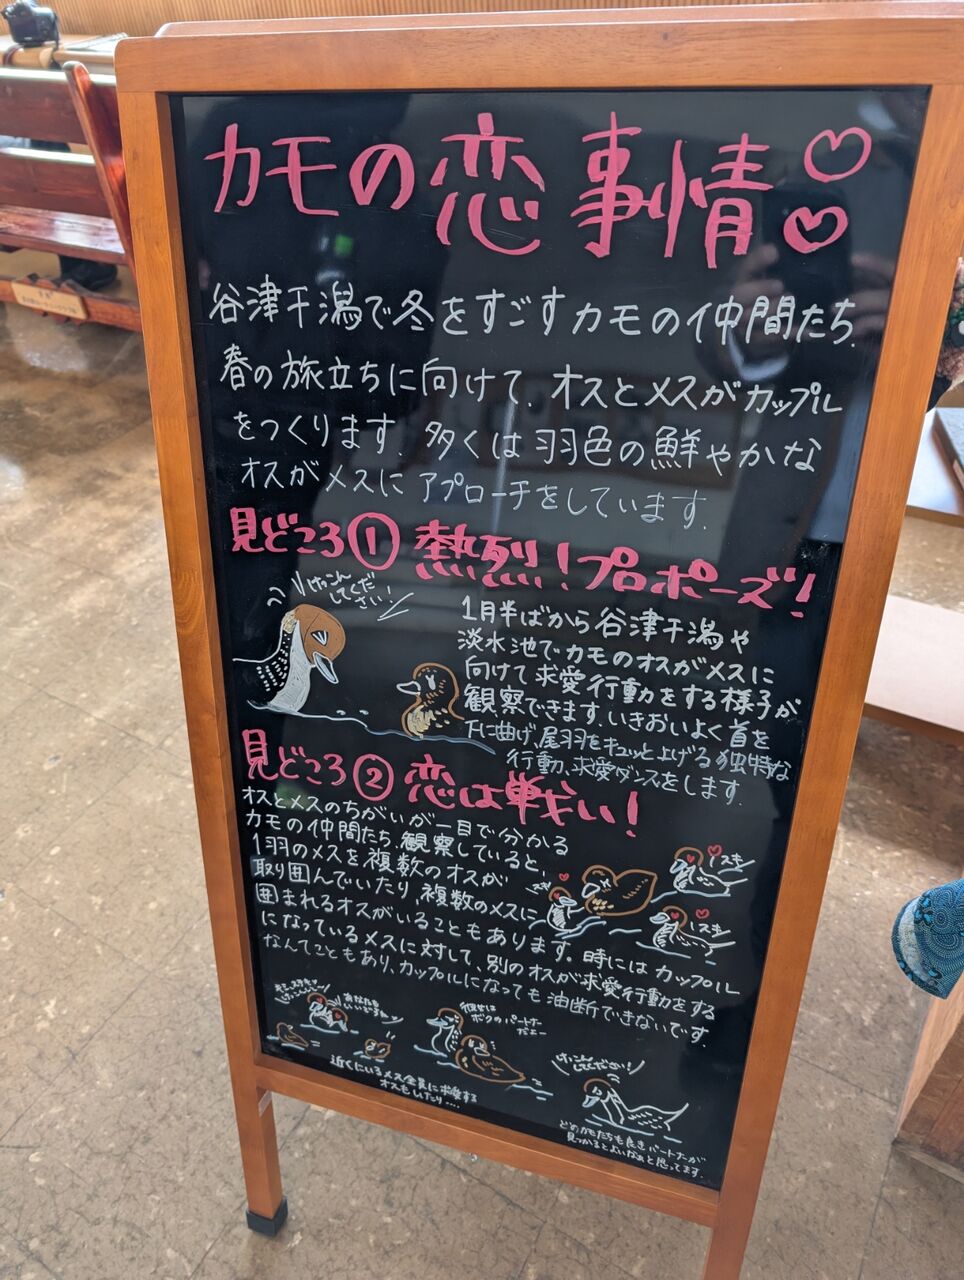 カモの恋事情
谷津干潟で冬をすごすカモの仲間たち.
春の旅立ちに向けて、オスとメスがカップル
をつくります. 多くは羽色の鮮やかな
オスがメスにアプローチをしています.
見どころ① 熱烈!プロポーズ!
けっこん
してくだ
さい!
1月半ばから谷津干潟や
淡水池でカモのオスがメスに
向けて求愛行動をする様子が
観察できます.いきおいよく首を
下に曲げ、尾羽をキュッと上げる独特な
行動、求愛ダンスをします.
見どころ② 恋は戦い!
オスとメスのちがいが一目で分かる
カモの仲間たち.観察していると、
1羽のメスを複数のオスが
取り囲んでいたり、複数のメスに
囲まれるオスがいることもあります。時にはカップル
になっているメスに対して、別のオスが求愛行動をする
なんてこともあり、カップルになっても油断できないです.
スキ
スキ
あなたも
ボクのパートナー
だよー
けっこん
してください!
近くにいるメス全員に求愛する
オスもいたり....
どのカモたちも良きパートナーが
見つかるとよいなぁと思ってます.